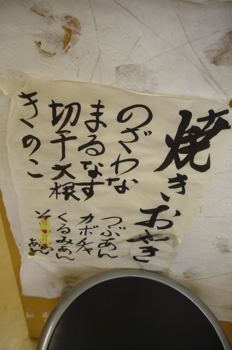 焼きおやき
のざわな
まるなす
切干大根
きのこ
つぶあん
カボチャ
くるみあん